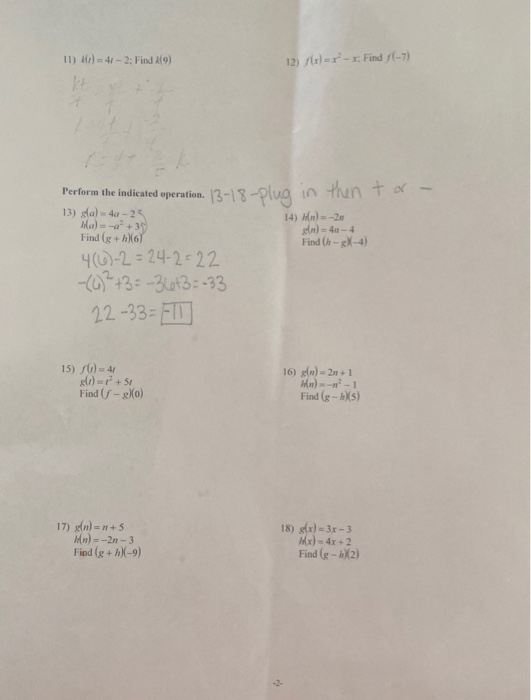 11) k(t) = 4t − 2; Find k(9)
12) f(x) = x² − x; Find f(−7)
Perform the indicated operation. 13-18 -plug in then + or −
13) g(a) = 4a − 2
h(a) = −a² + 3
Find (g + h)(6)
4(6)-2 = 24-2 = 22
-(6)²+3 = -36+3 = -33
22-33 = -11
14) h(n) = −2n
g(n) = 4n − 4
Find (h − g)(−4)
15) f(t) = 4t
g(t) = t² + 5t
Find (f − g)(0)
16) g(n) = 2n + 1
h(n) = −n² − 1
Find (g − h)(5)
17) g(n) = n + 5
h(n) = −2n − 3
Find (g + h)(−9)
18) g(x) = 3x − 3
h(x) = 4x + 2
Find (g − h)(2)
-2-